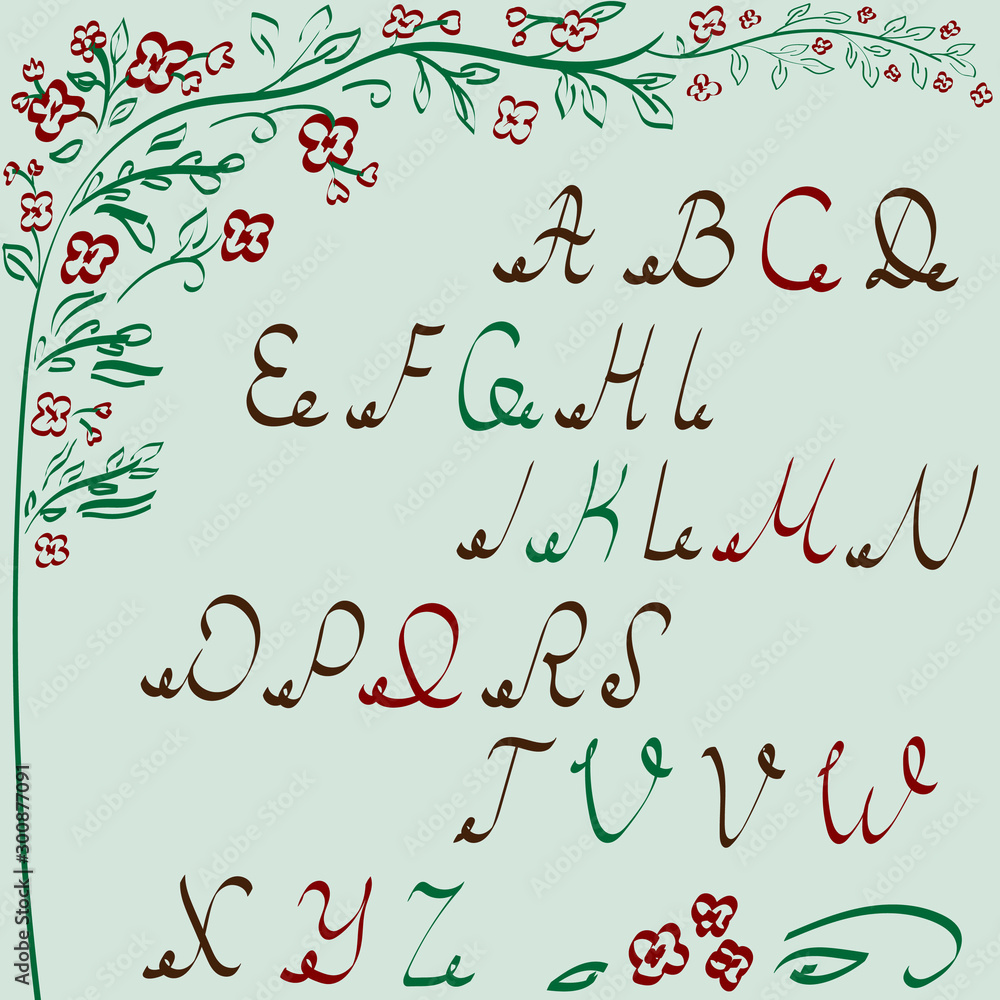 A B C D
E F G H I
J K L M N
O P Q R S
T U V W
X Y Z
Adobe Stock | #300877091